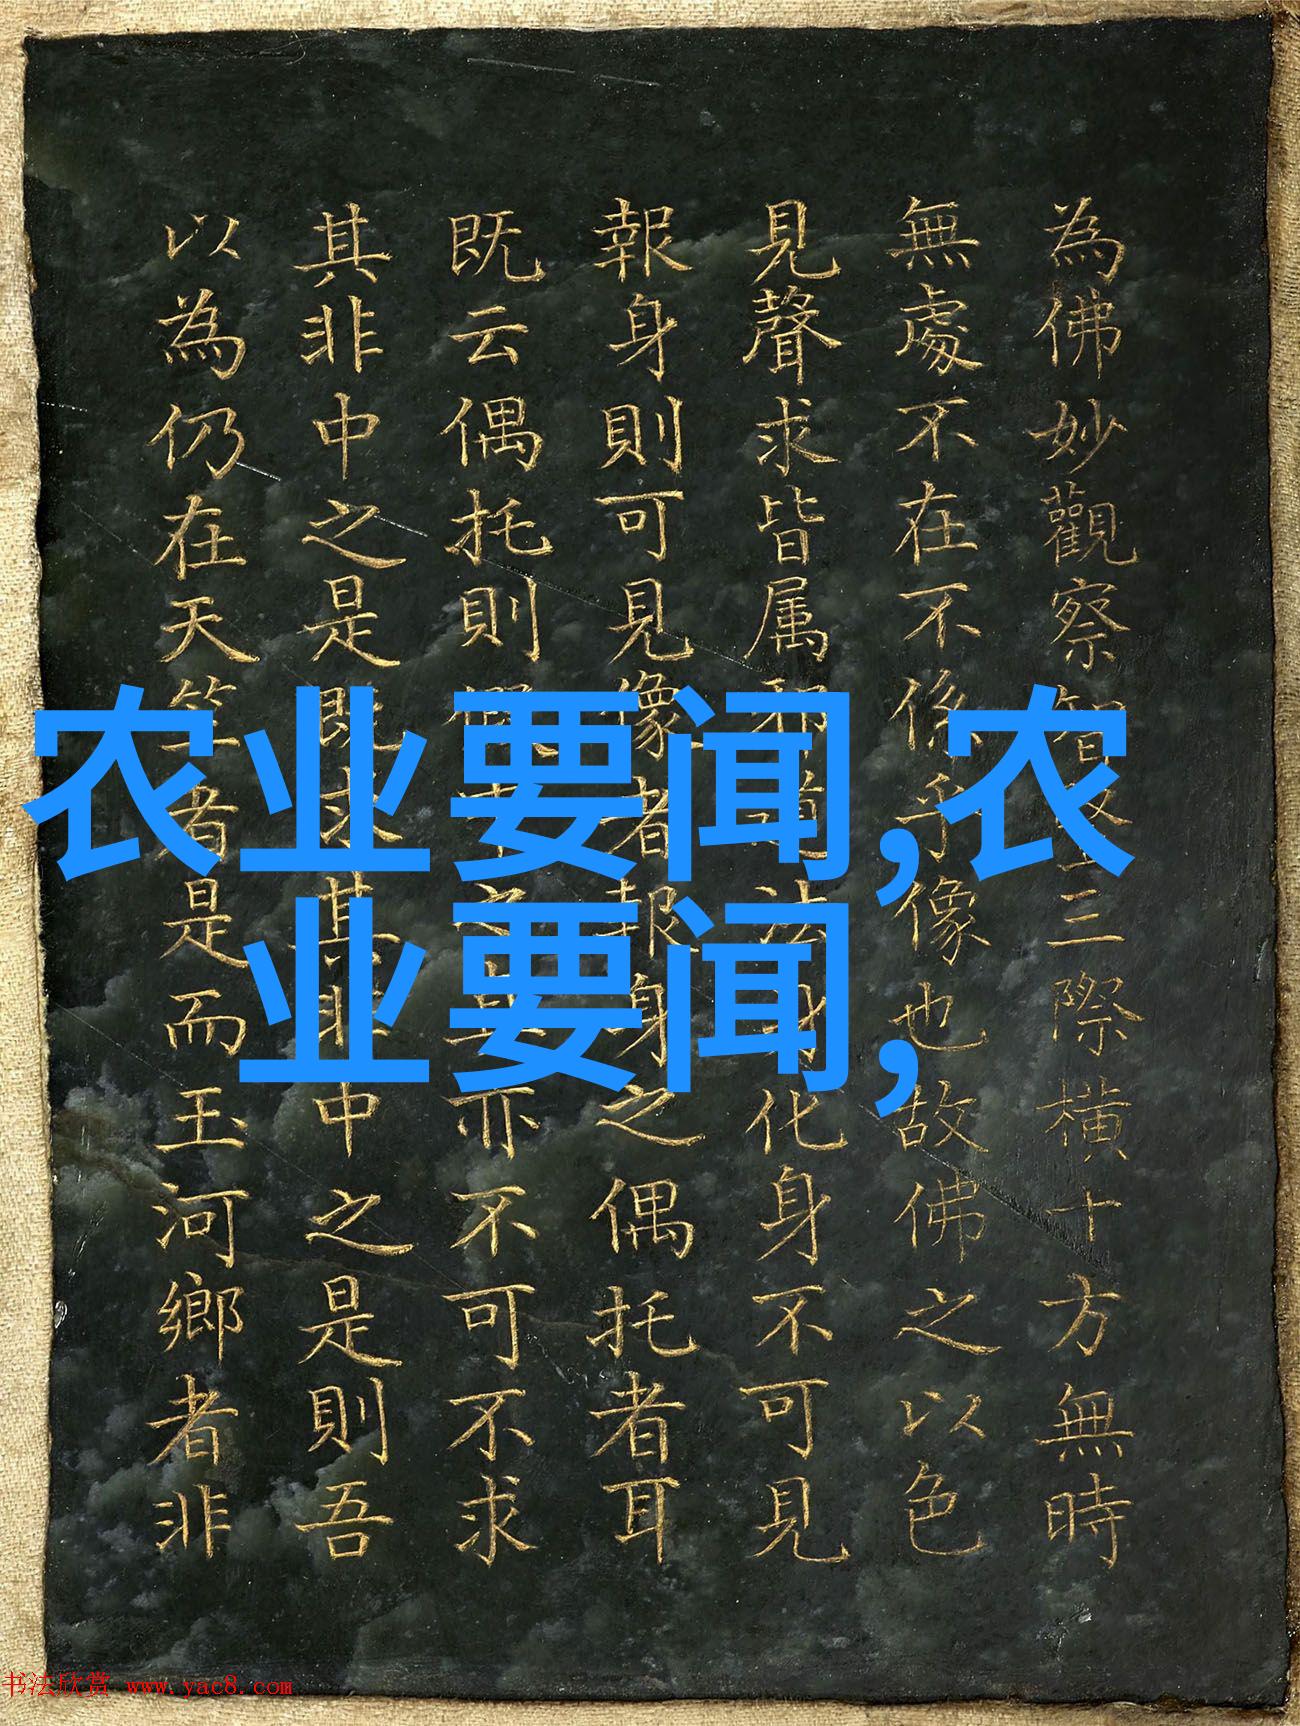 为佛妙觀察智三際橫十方無時
無處不在不係乎像也故佛之以色
見聲求皆属邪道法身化身不可見
報身則可見像者報身之偶托者耳
既云偶托則之亦不可不求
其非中之是既求其非中之是則吾
以為仍在天竺者是而玉河鄉者非
农业要闻,农
业要闻,
书法欣赏 www.yac8.com